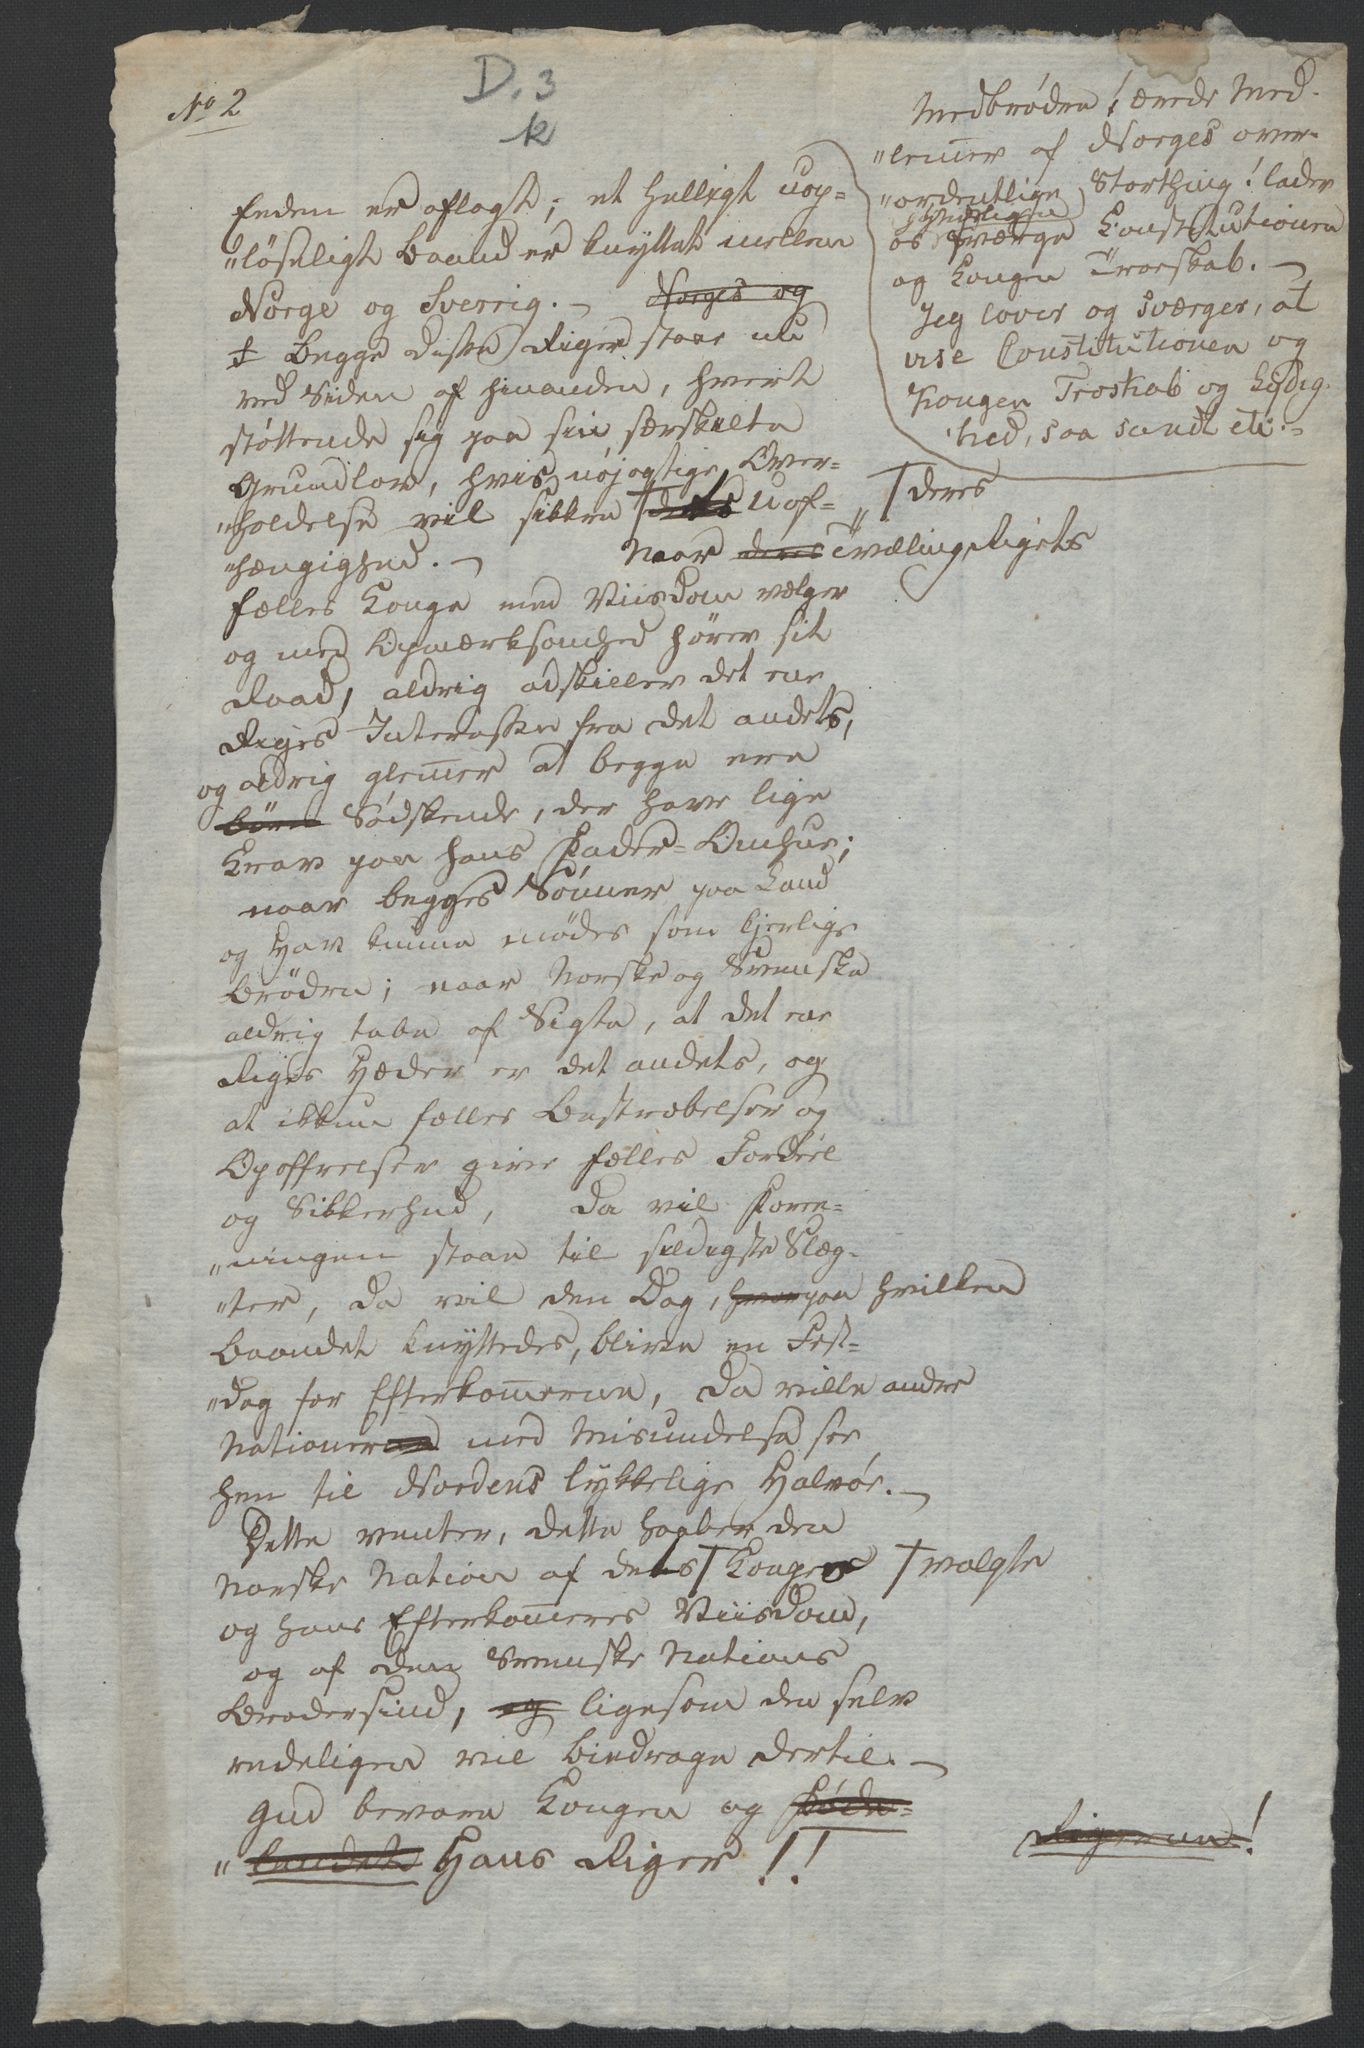 No 2
D. 3
k
Medbrödre! ærede Med-
"lem̄er af Norges over-
"ordentlige Storthing! lader
os höitideligen sværge Constitutionen
og Kongen Troeskab. —
Jeg lover og sværger, at
vise Constitutionen og
Kongen Troskab og Lydig-
hed, saa sandt etc.
Eeden er aflagt; et helligt uop-
"löseligt Baand er knyttet mellem
Norge og Sverrig. — Norges og
Begge disse Riger staae nu
ved Siden af hinanden, hvert
støttende sig paa sin særskilte
Grundlov, hvis nøjagtige Over-
"holdelse vil sikkre † dets Uaf- † deres
"hængighed. — Naar deres Tvillinge Rigets
fælles Konge med Viisdom vælger
og med Opmærksomhed hörer sit
Raad, aldrig adskiller det ene
Riges Interesse fra det andets,
og aldrig glem̄er at begge ere
börn Södskende, der have lige
Krav paa hans Fader-Omhue;
naar begges Sönner paa Land
og Hav kunne mødes som kjerlige
Brödre; naar Norske og Svenske
aldrig tabe af Sigte, at det ene
Riges Hæder er det andets, og
at ikkun fælles Bestræbelser og
Opoffrelser give fælles Fordeel
og Sikkerhed, da vil Foree-
"ningen staae til sildigste Slæg-
"ter, da vil den Dag, hvorpaa hvilken
Baandet knyttedes, blive en Fest-
"dag for Efterkom̄erne, da ville andre
Nationerne med Misundelse see
hen til Nordens lykkelige Halvöe. —
Dette venter, dette haaber den
norske Nation af dets † Konges † valgte
og hans Efterkom̄eres Viisdom,
og af den Svenske Nations
Brodersind, og ligesom den selv
redeligen vil bidrage dertil. —
Gud bevare Kongen og Föde-
"landet Hans Riger!! Rigerne!